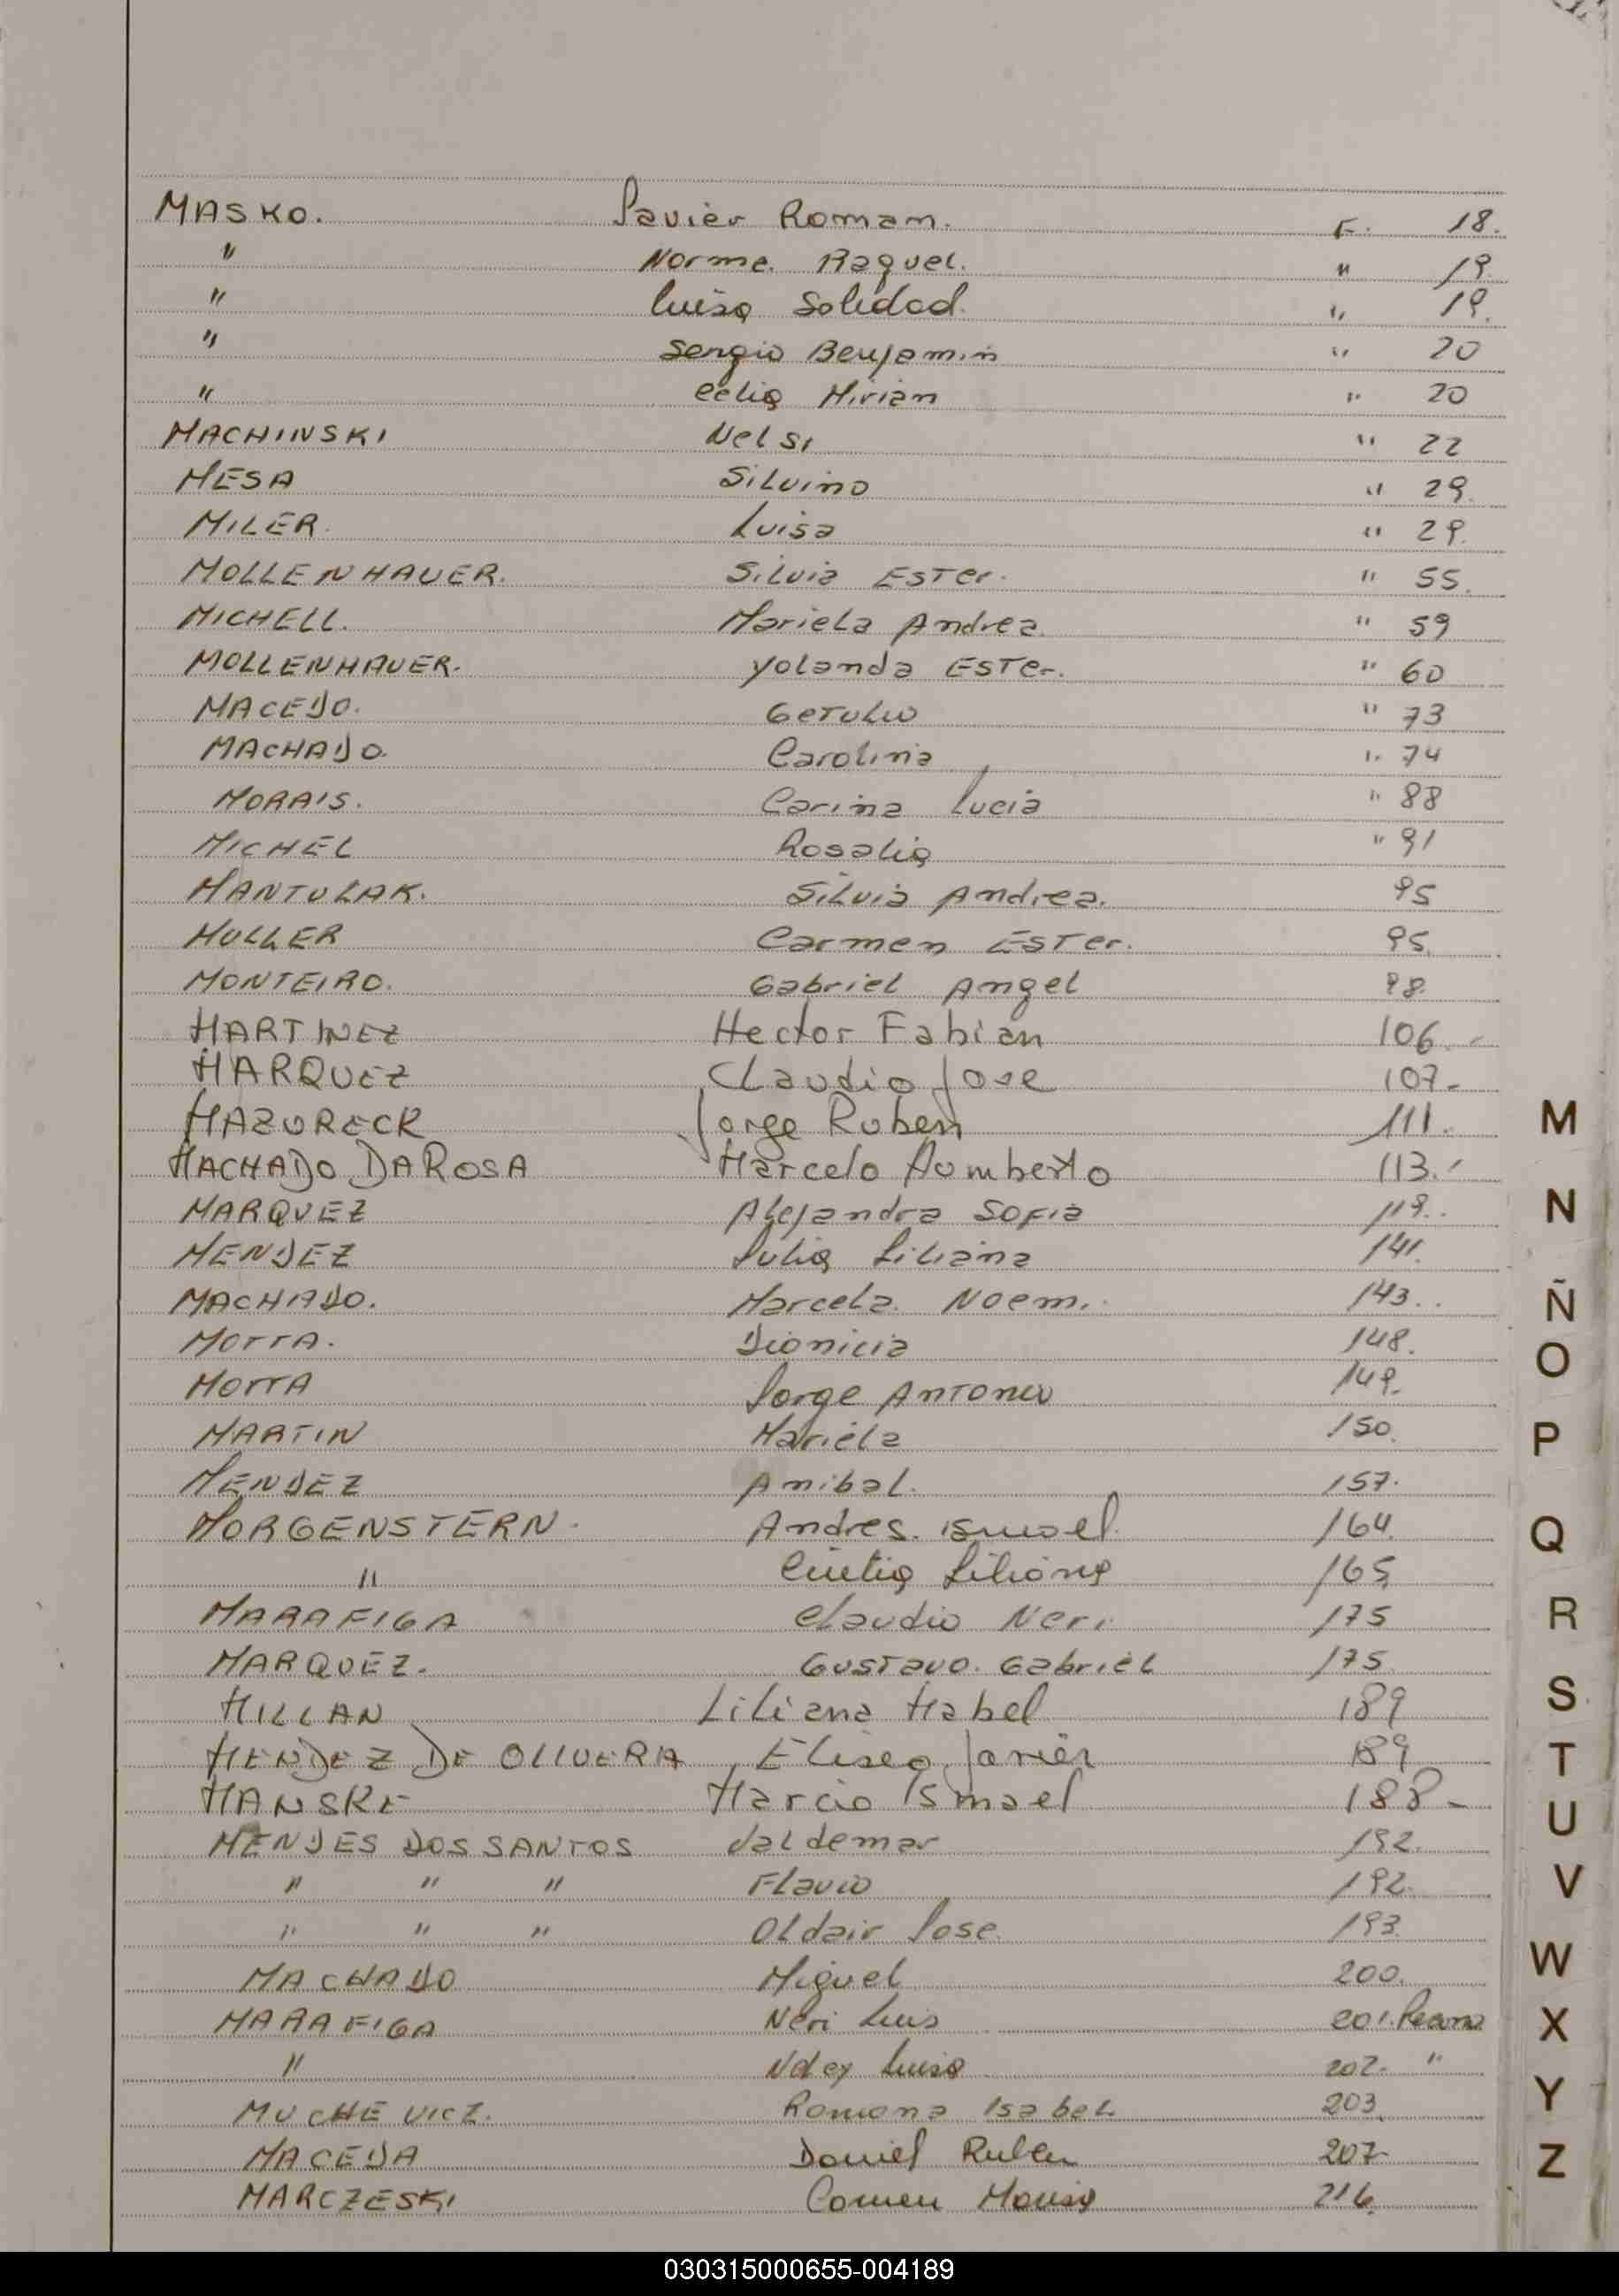 MASKO. Javier Roman. F. 18.
" Norma. Raquel. " 19.
" Luisa Soledad. " 19.
" Sergio Benjamin " 20
" Celia Mirian " 20
MACHINSKI Nelsi " 22
MESA Silvino " 29.
MILER. Luisa " 29.
MOLLENHAUER. Silvia Ester. " 55.
MICHELL. Mariela Andrea. " 59
MOLLENHAUER. Yolanda Ester. " 60
MACEDO. Getulio " 73
MACHADO. Carolina " 74
MORAIS. Carina Lucia " 88
MICHEL Rosalia " 91
MANTULAK. Silvia Andrea. 95
MULLER Carmen Ester. 95.
MONTEIRO. Gabriel Angel 98
MARTINEZ Hector Fabian 106.-
MARQUEZ Claudio Jose 107.-
MAZURECK Jorge Ruben 111.
MACHADO DA ROSA Marcelo Humberto 113.-
MARQUEZ Alejandra Sofia 119..
MENDEZ Julia Liliana 141.
MACHADO. Marcela. Noemi. 143..
MOTTA. Dionicia 148.
MOTTA Jorge Antonio 149.
MARTIN Mariela 150.
MENDEZ Anibal. 157.
MORGENSTERN. Andres. Ismael. 164.
" Cintia Liliana 165
MARAFIGA Claudio Neri. 175
MARQUEZ. Gustavo. Gabriel 175
MILLAN Liliana Mabel 189
MENDEZ DE OLIVERA Eliseo Javier 189
MANSKE Marcio Ismael 188-
MENDES DOS SANTOS Valdemar 192.
" " " Flavio 192.
" " " Oldair Jose. 193.
MACHADO Miguel 200.
MARAFIGA Neri Luis 201.
" Luisa 202. "
MUCHEVICZ. Romona Isabel 203
MACEDA Daniel Ruben 207-
MARCZESKI Carmen 216.
M
N
Ñ
O
P
Q
R
S
T
U
V
W
X
Y
Z
030315000655-004189